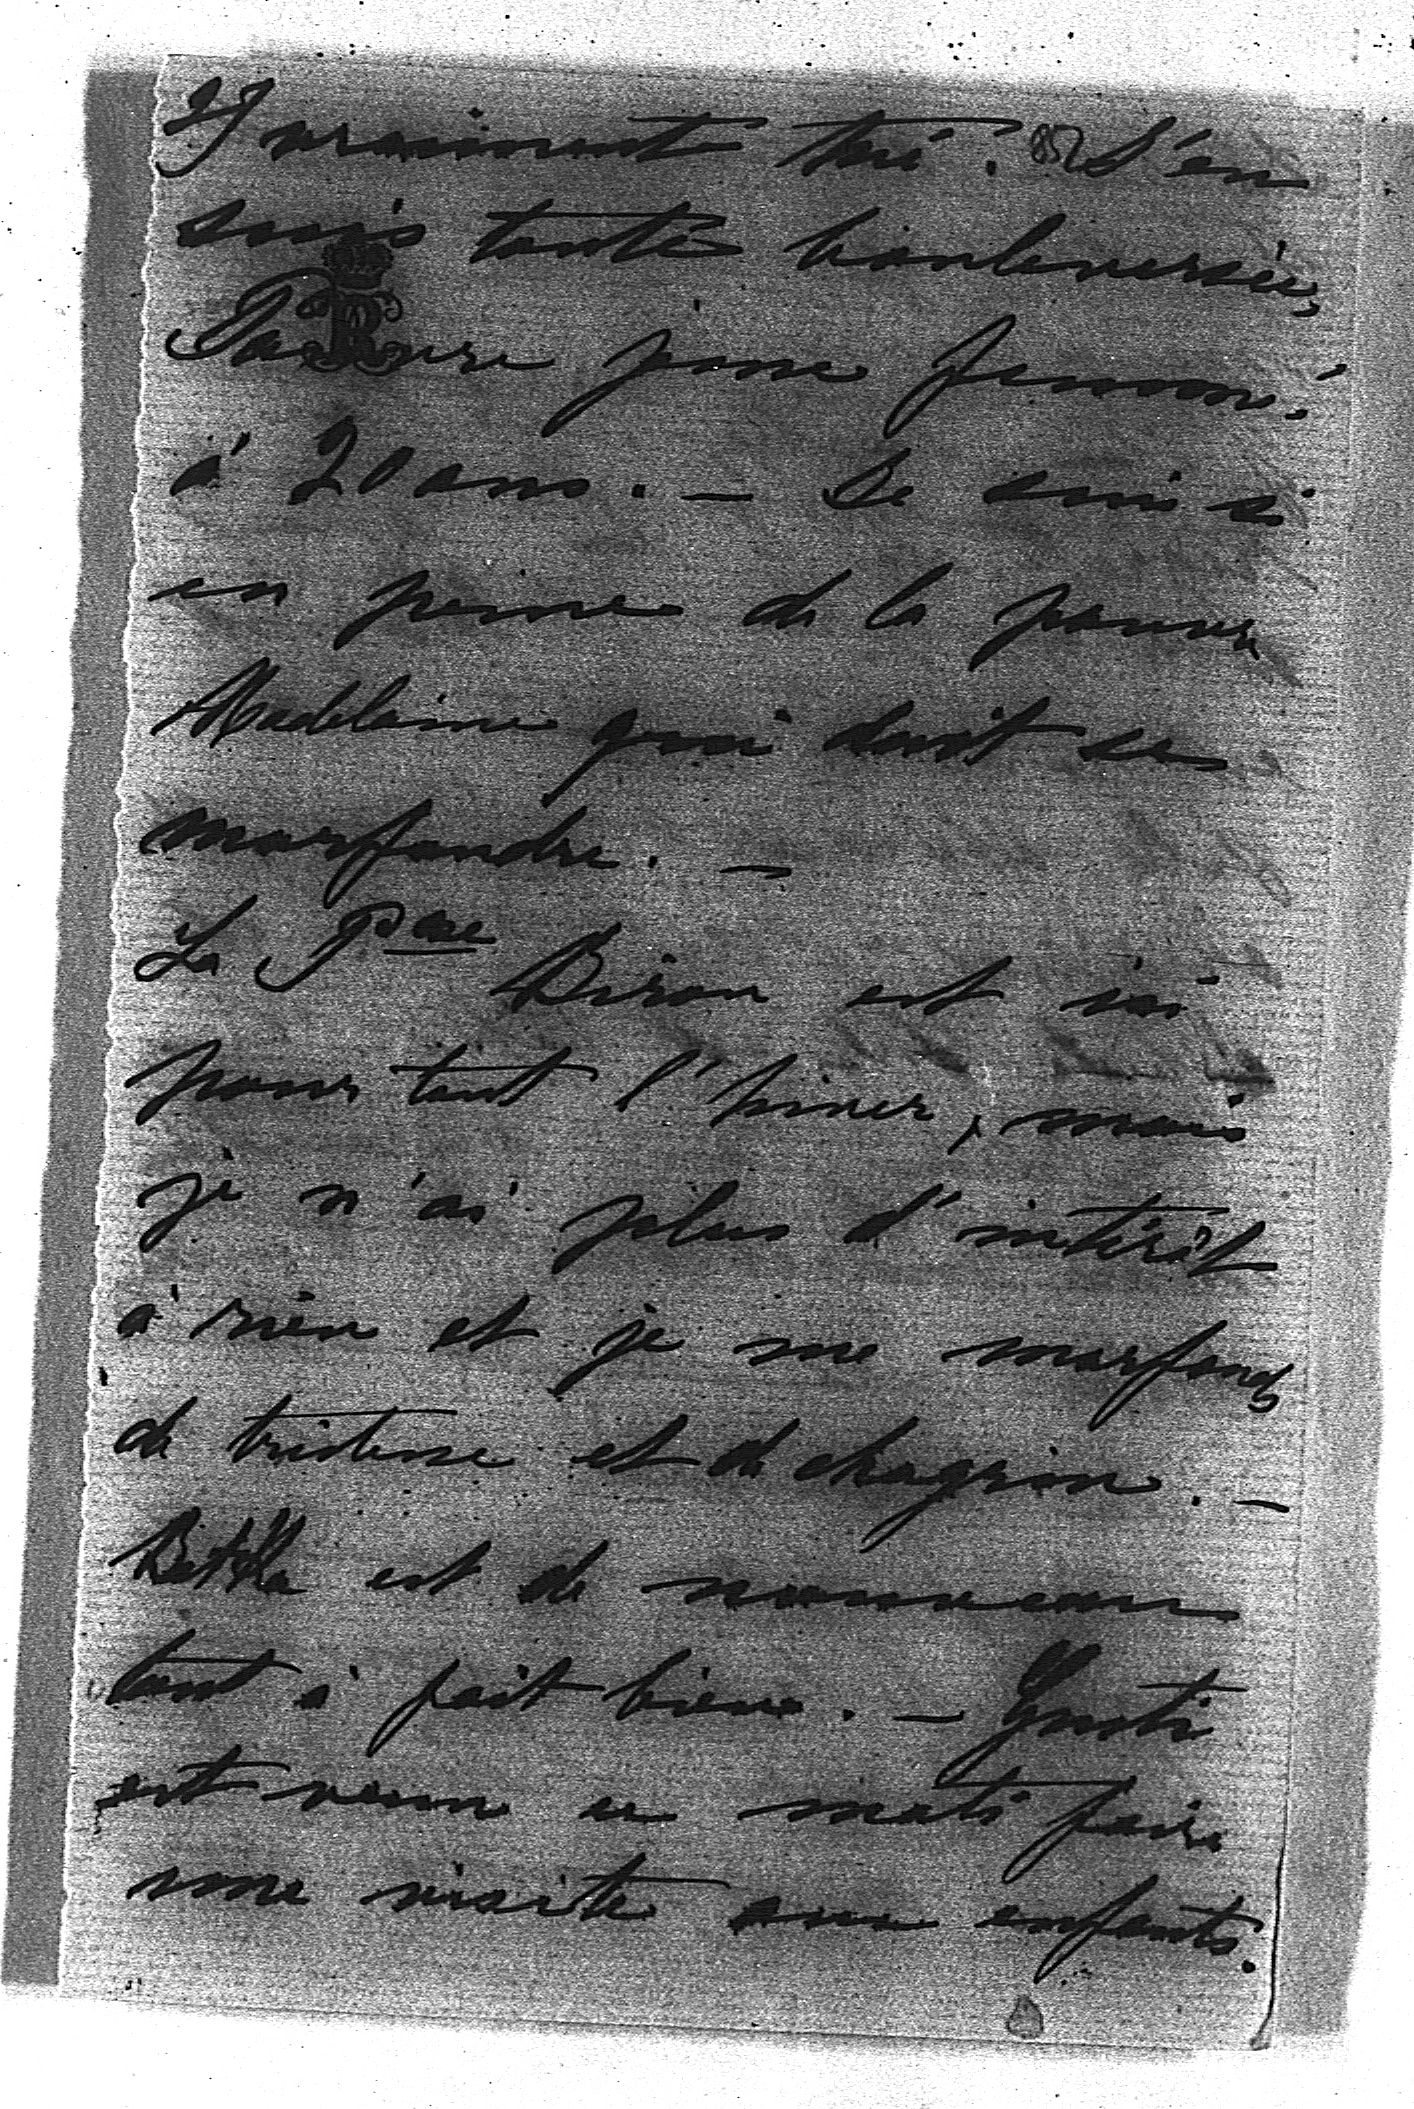 vraiment tué! 85 J'en
suis toute bouleversée,
Pauvre jeune femme!
à 20 ans. — Je suis si
en peine de la pauvre
Madelaine qui doit se
morfondre. —
La Pcsse Biron est ici
pour tout l'hiver, mais
je n'ai plus d'intérêt
à rien et je me morfonds
de tristesse et de chagrin. —
Betka est de nouveau
tout à fait bien. — Gusti
est venu ce matin faire
une visite aux enfants.